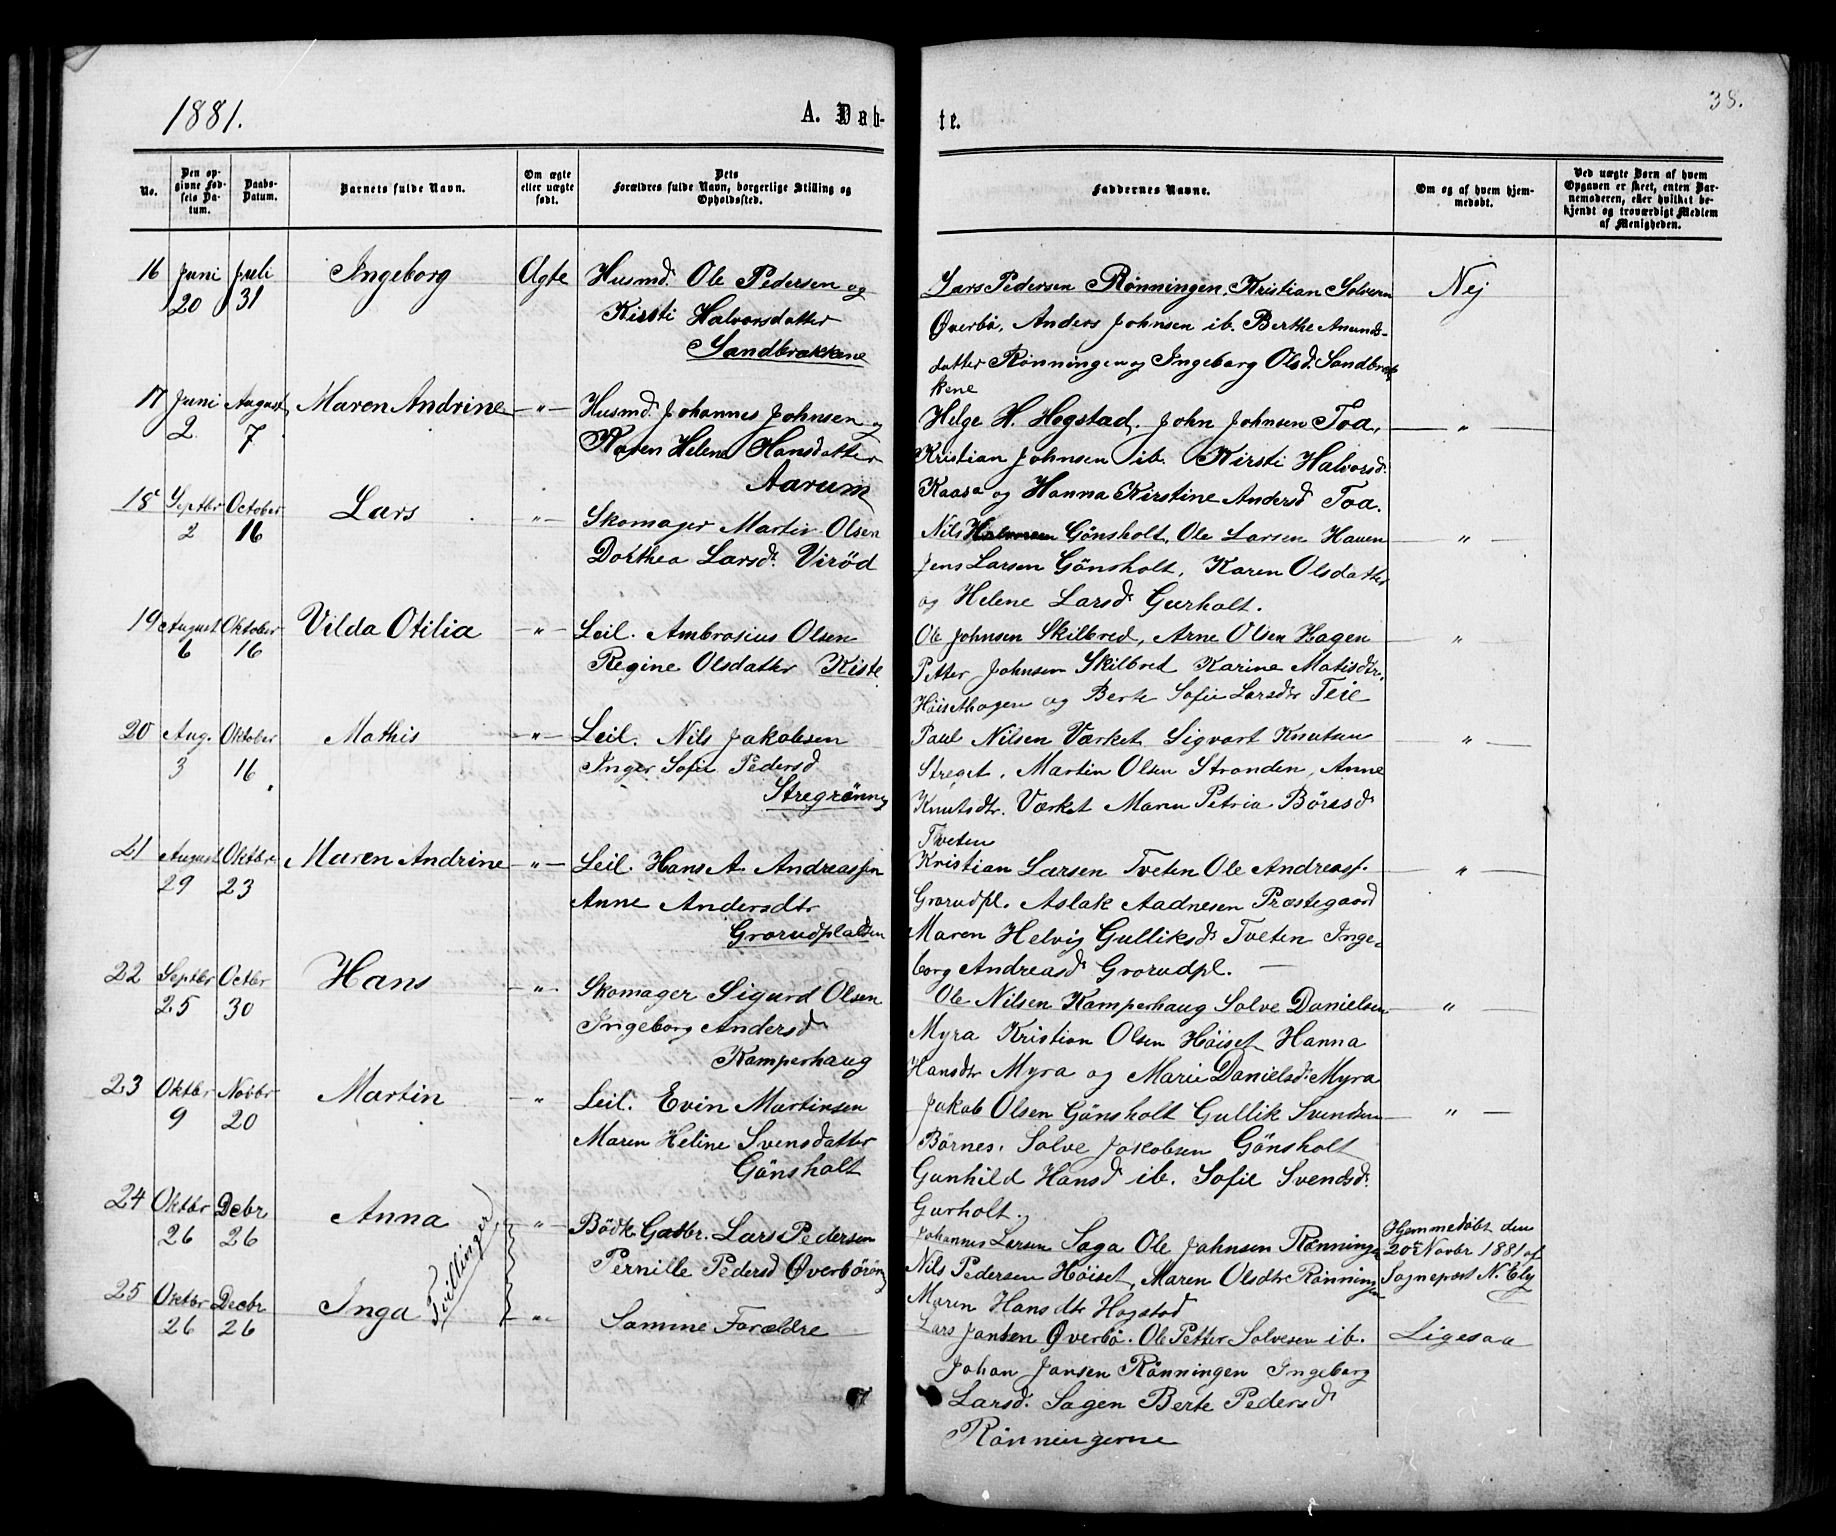 1881.
A. Døb-
te.
38.
No.
Den op-
givne Fød-
sels Da-
tum.
Daabs-
Datum.
Barnets fulde Navn.
Om ægte
eller uægte
født.
Dets
Forældres fulde Navn, borgerlige Stilling og
Opholdssted.
Faddernes Navne.
Om og af hvem hjem-
medøbt.
Ved uægte Børn af hvem
Opgaven er skeet, enten Bar-
nemoderen, eller hvilket be-
kjendt og troværdigt Medlem
af Menigheden.
16 Juni 20 Juli 31 Ingeborg Ægte
Husmd. Ole Pedersen og
Kirsti Halvorsdatter
Sandbrækkene
Lars Pedersen Rønningen, Kristian Solvesen
Øverbö, Anders Johnsen ib. Berthe Amunds-
datter Rønningen og Ingeborg Olsd. Sandbræk-
kene
Nej
17 Juni 2. August 7 Maren Andrine -"-
Husmd. Johannes Johnsen og
Karen Helene Hansdatter
Aarum
Helge H. Hegstad, John Johnsen Toa,
Kristian Johnsen ib. Kirsti Halvorsd.
Kaasa og Hanna Kirstine Andersd Toa.
"
18 Septbr 2 October 16 Lars "
Skomager Martin Olsen
Dorthea Larsd. Virød
Nils Halvorsen Gönsholt, Ole Larsen Haven
Jens Larsen Gönsholt, Karen Olsdatter
og Helene Larsd. Gurholt.
"
19 August 6 Oktober 16 Vilda Otilia -"-
Leil. Ambrosius Olsen
Regine Olsdatter Kiste
Ole Johnsen Skilbred, Arne Olsen Hagen
Petter Johnsen Skilbred Karine Matisdtr.
Höisethagen og Berte Sofie Larsdtr Teie
"
20 Aug. 3 Oktober 16 Mathis -"-
Leil. Nils Jakobsen
Inger Sofie Pedersd
Stregrönn
Paul Nilsen Værket Sigvart Knutsen
Streget, Martin Olsen Stranden, Anne
Knutsdtr. Værket Maren Petria Böresd
Tveten
"
21 August 29 Oktbr 23 Maren Andrine -"-
Leil. Hans A. Andreassen
Anne Andersdtr
Grorudpladsen
Kristian Larsen Tveten Ole Andreass.
Grorudpl. Aslak Aadnesen Præstegaard
Maren Helvig Gulliksd Tveten Inge-
borg Andreasd Grorudpl.
"
22 Septbr 25 Octbr 30 Hans -"-
Skomager Sigurd Olsen
Ingeborg Andersd
Kamperhaug
Ole Nilsen Kamperhaug Solve Danielsen
Myra Kristian Olsen Höiset Hanna
Hansdtr Myra og Marie Danielsd. Myra
"
23 Oktbr 9 Novbr 20 Martin "
Leil. Evin Martinsen
Maren Heline Svensdatter
Gönsholt
Jakob Olsen Gönsholt Gullik Svendsen
Börnes. Solve Jakobsen Gönsholt
Gunhild Hansd ib. Sofie Svendsd.
Gurholt.
"
24 Oktbr 26 Decbr 26 Anna Tvillinger -"-
Bödk. Gaabr. Lars Pedersen
Pernille Pedersd Øverbörön
Johannes Larsen Saga Ole Johnsen Rønningen
Nils Pedersen Höiset, Maren Olsdtr Rønningen
Maren Hansdtr Hogstad
Hjemmedöbt den
20de Novbr 1881 af
Sognepræst N. Ely
25 Oktbr 26 Decbr 26 Inga -"-
Samme Forældre
Lars Jansen Øverbö. Ole Petter Solvesen ib.
Johan Jansen Rønningen Ingeborg
Larsd. Sagen Berte Pedersd
Rønningerne
Ligesaa